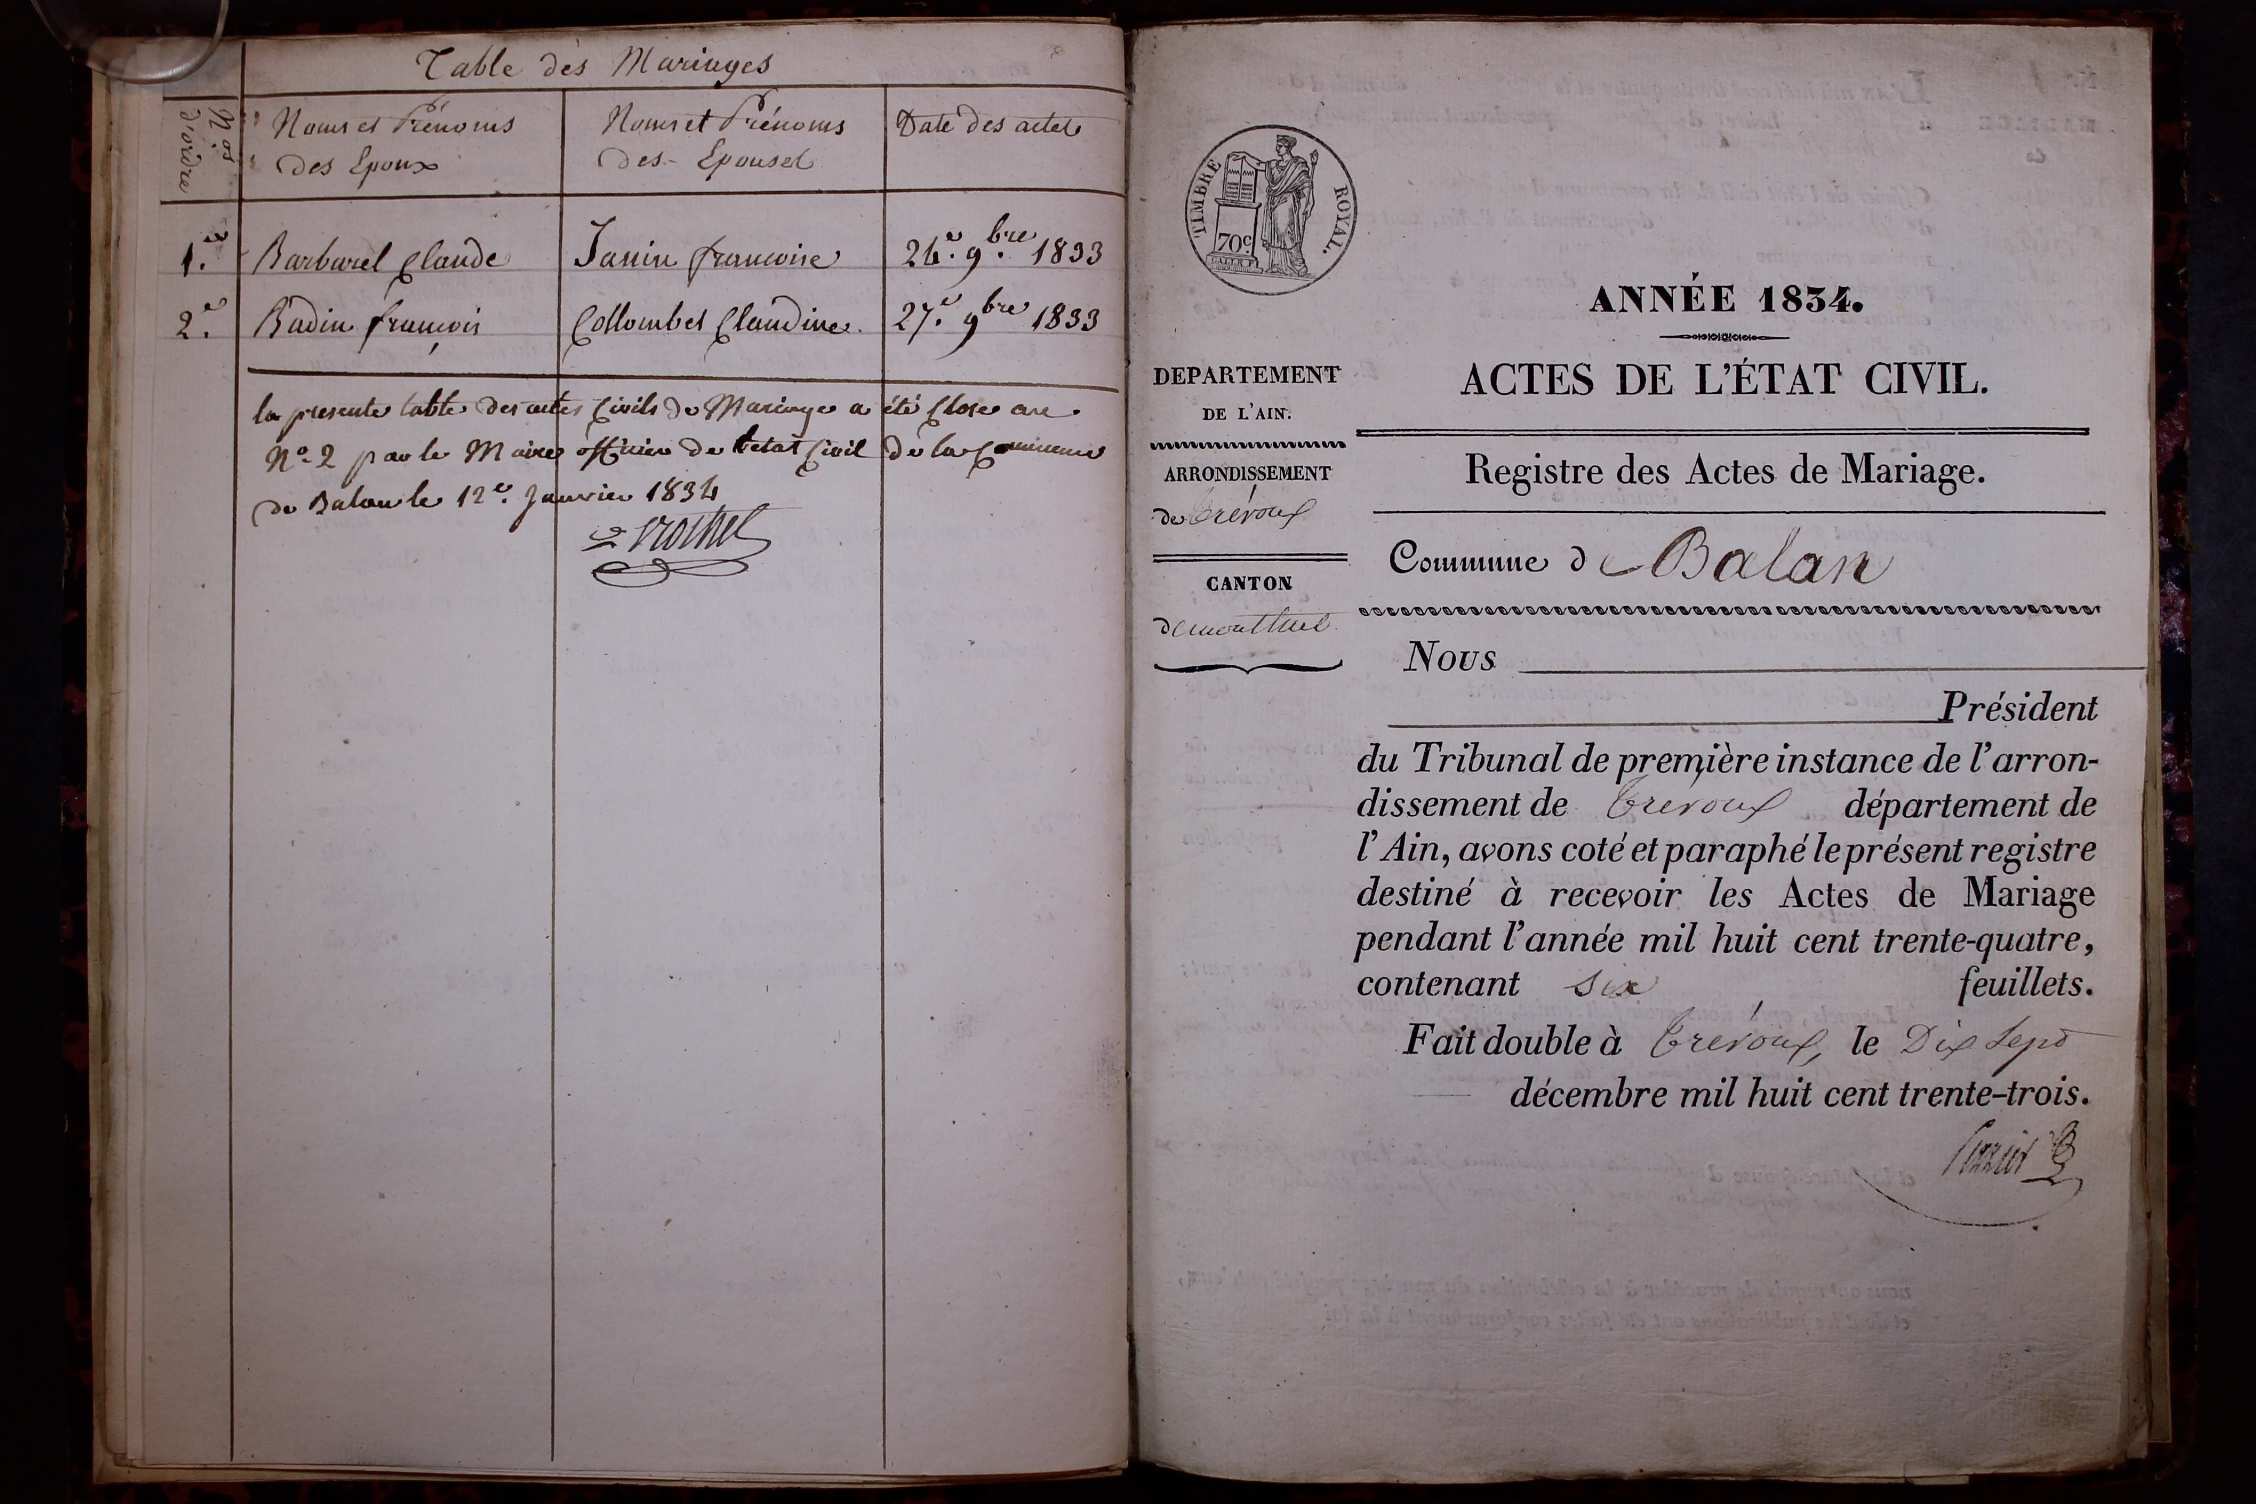 Table des Mariages
Nos d'ordre
Noms et Prénoms
des Epoux
Noms et Prénoms
des Epouses
Date des actes
1.e Barbarel Claude Janin francoise 26.e 9.bre 1833
2.e Badin francois Collombet Claudine. 27.e 9bre 1833
la presente table des actes Civils de Mariage a été Close au
No. 2 par le Maire officier de l'etat Civil de la Commune
de Balan le 12.e Janvier 1834
TIMBRE ROYAL.
70c.
ANNÉE 1834.
ACTES DE L'ÉTAT CIVIL.
DEPARTEMENT
DE L'AIN.
ARRONDISSEMENT
de Trévoux
CANTON
de montluel
Registre des Actes de Mariage.
Commune de Balan
Nous
Président
du Tribunal de première instance de l'arron-
dissement de Trévoux département de
l'Ain, avons coté et paraphé le présent registre
destiné à recevoir les Actes de Mariage
pendant l'année mil huit cent trente-quatre,
contenant six feuillets.
Fait double à Trévoux, le Dix sept
décembre mil huit cent trente-trois.